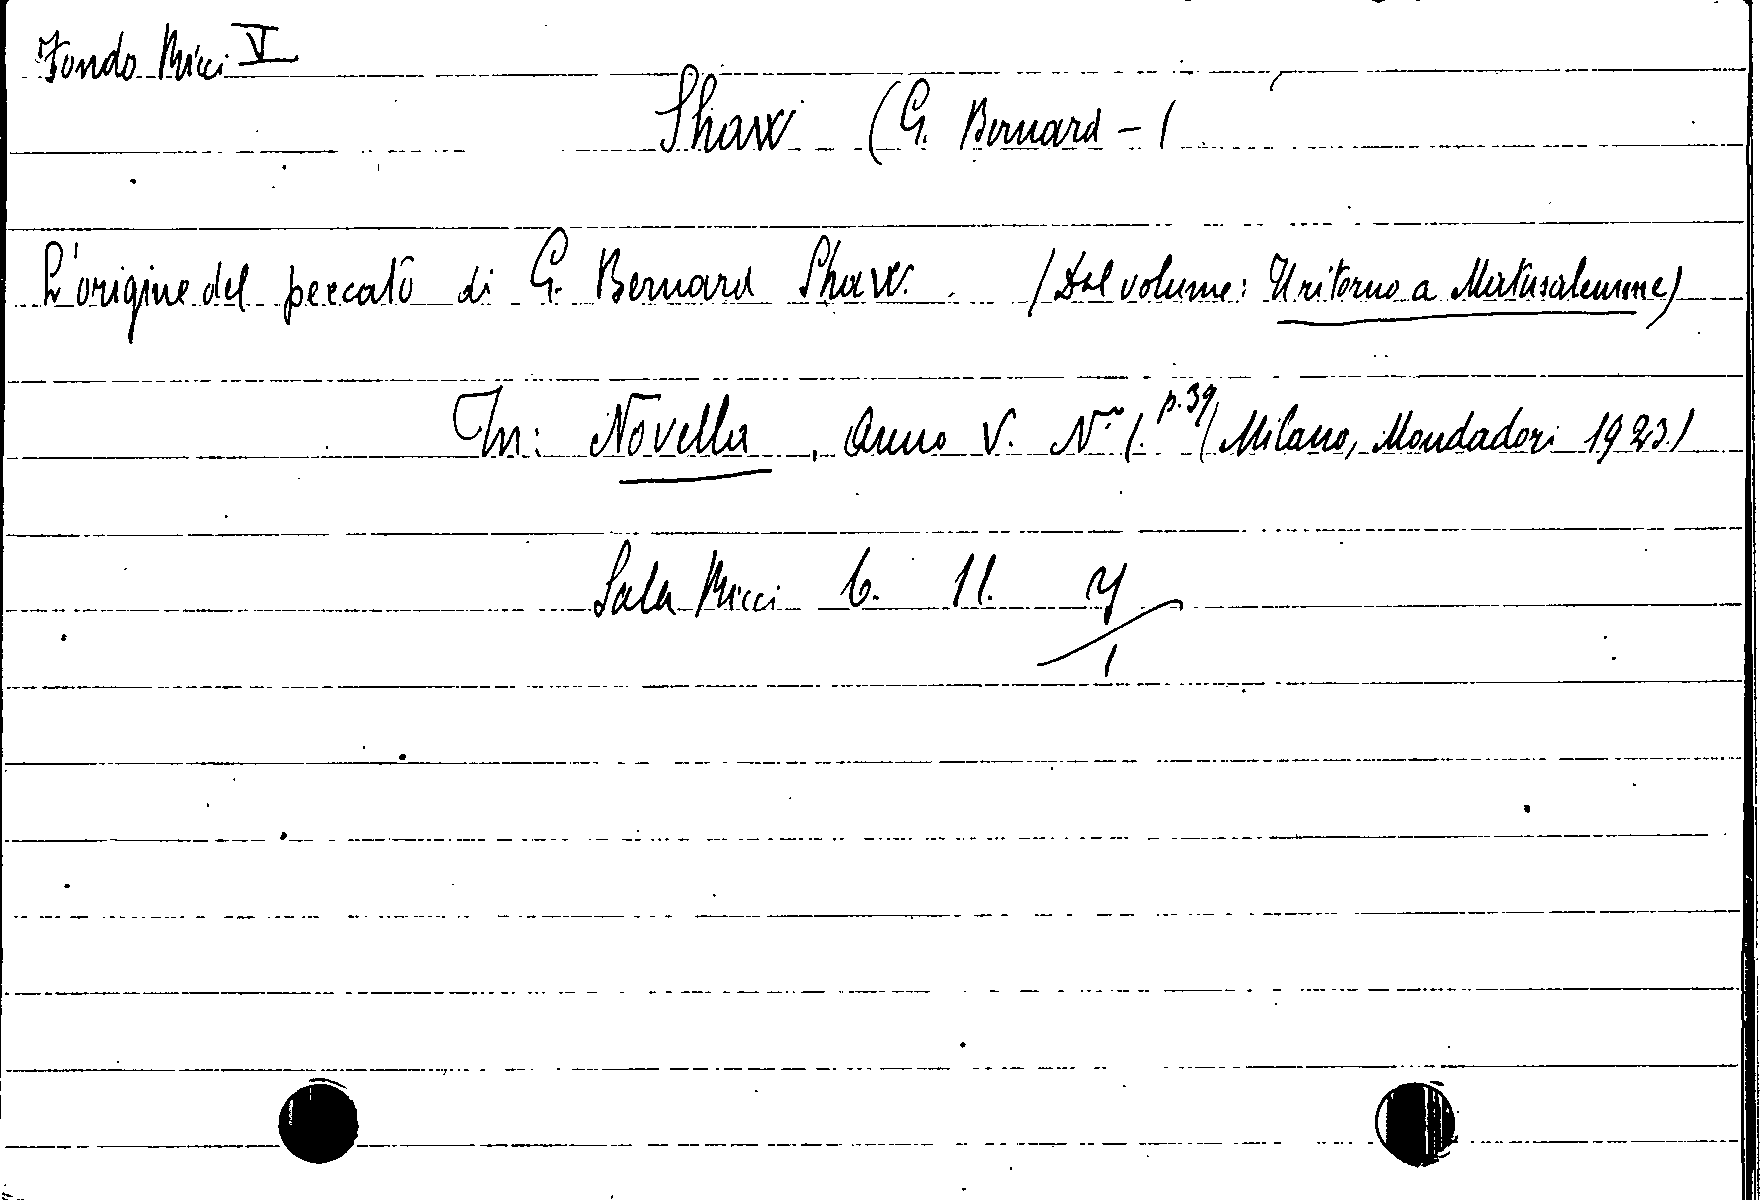 Fondo Ricci V
Shaw (G. Bernard - )
L'origine del peccato di G. Bernard Shaw. (Dal volume: Il ritorno a Matusalemme)
In: Novella, Anno V. N.° 1. p. 39 (Milano, Mondadori 1923)
Sala Ricci 6. 11. 4
1